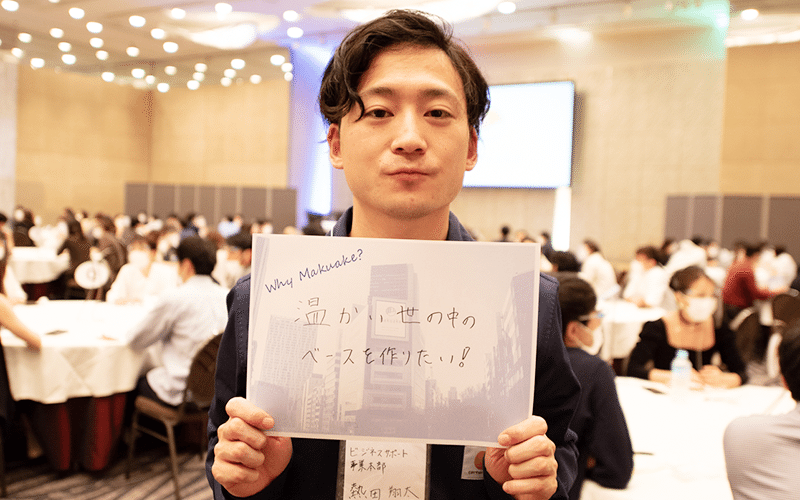 Why Makuake?
温かい世の中の
ベースを作りたい!
ビジネスサポート
事業本部
熱田 翔太